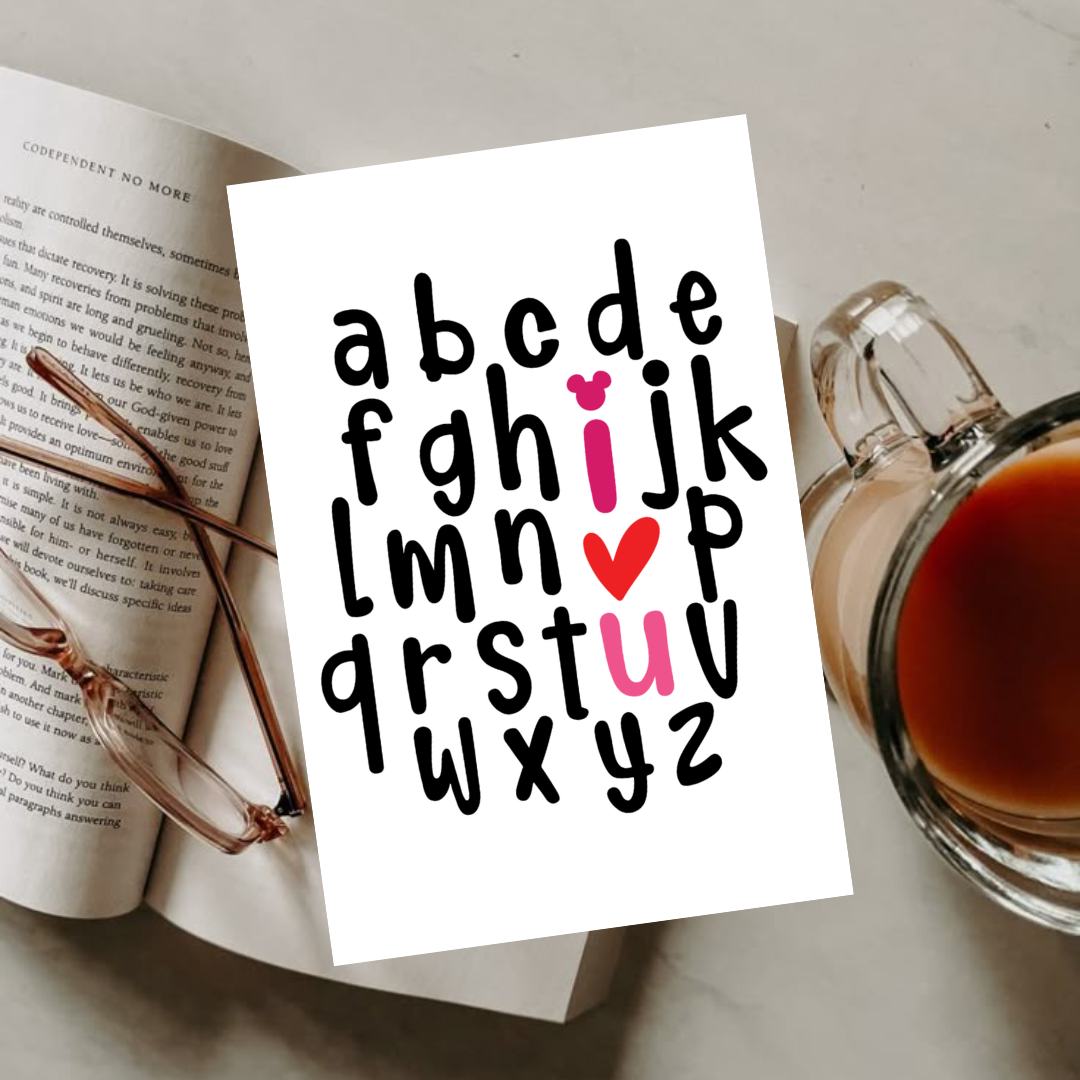 CODEPENDENT NO MORE
reality are controlled themselves, sometimes
that dictate recovery. It is solving these
fun. Many recoveries from problems that
and spirit are long and grueling. Not so,
emotions we would be feeling anyway, and
as we begin to behave differently, recovery from
It lets us be who we are. It lets
good. It brings our God-given power to
us to receive love enables us to love
provides an optimum the good stuff
for the
have been living with. up the
it is simple. It is not always easy,
many of us have forgotten or
for him- or herself. It involves
we will devote ourselves to: taking care
book, we'll discuss specific ideas
for you. Mark characteristic
And mark
another chapter,
to use it now as a
What do you think
Do you think you can
paragraphs answering
a b c d e
f g h i j k
l m n p
q r s t u v
w x y z